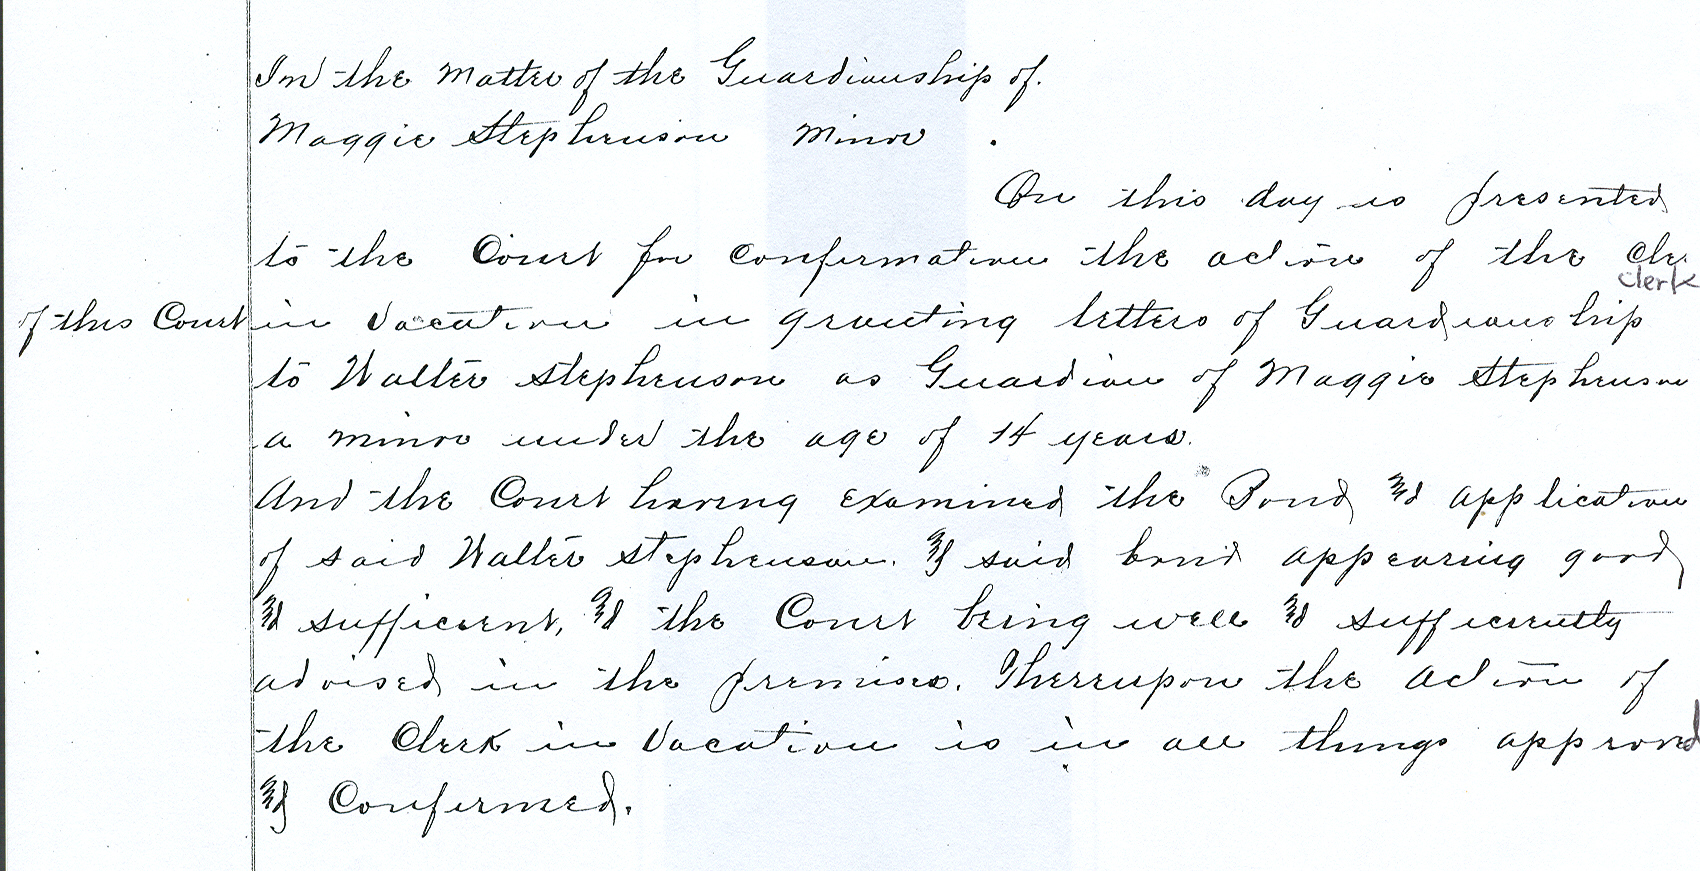 In the Matter of the Guardianship of.
Maggie Stephenson Minor .
On this day is presented
to the Court for confirmation the action of the Cle
clerk
of this Court in Vacation in granting letters of Guardianship
to Walter Stephenson as Guardian of Maggie Stephenson
a minor under the age of 14 years.
And the Court having examined the Bond & application
of said Walter Stephenson. & said bond appearing good
& sufficient, & the Court being well & sufficiently
advised in the premises. Thereupon the action of
the Clerk in Vacation is in all things approved
& Confirmed.